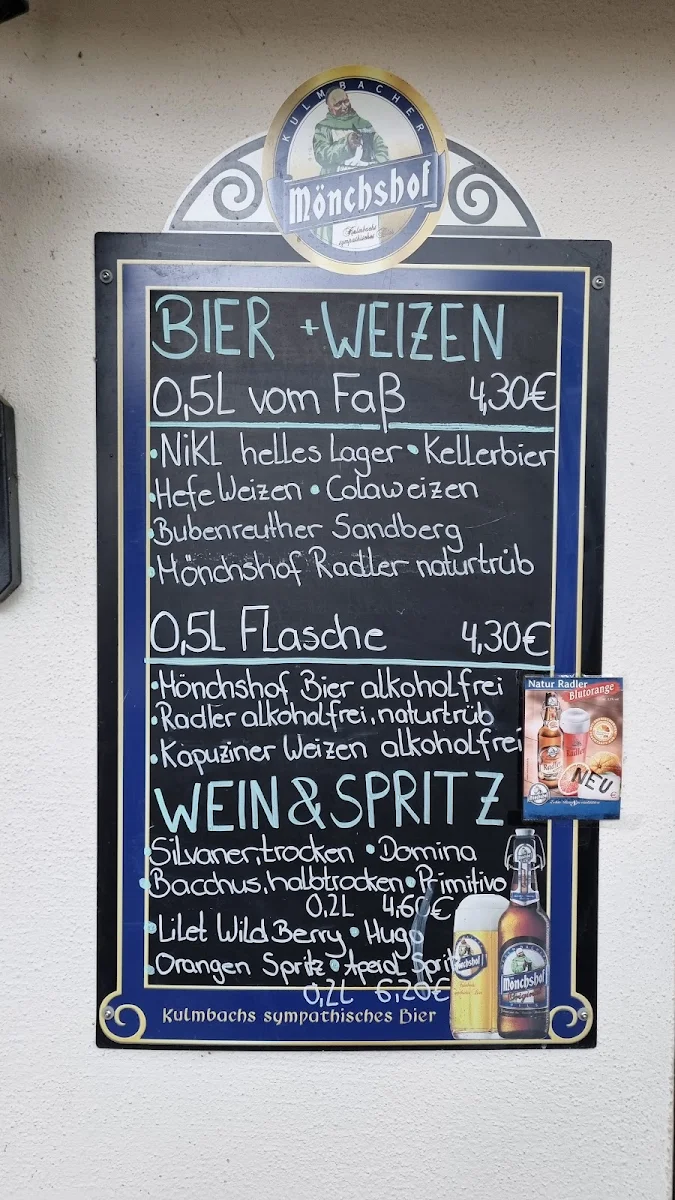 KULMBACHER
Mönchshof
Kulmbachs
sympathisches Bier
BIER + WEIZEN
0,5L vom Faß 4,30€
• NiKL helles Lager • Kellerbier
• Hefe Weizen • Colaweizen
• Bubenreuther Sandberg
• Mönchshof Radler naturtrüb
0,5L Flasche 4,30€
• Mönchshof Bier alkoholfrei
• Radler alkoholfrei, naturtrüb
• Kapuziner Weizen alkoholfrei
Natur Radler
Blutorange
NEU
WEIN & SPRITZ
• Silvaner, trocken • Domina
• Bacchus, halbtrocken • Primitivo
0,2L 4,60€
• Lilet Wild Berry • Hugo
• Orangen Spritz • Aperol Spritz
0,2L 6,20€
Mönchshof
Kulmbachs sympathisches Bier